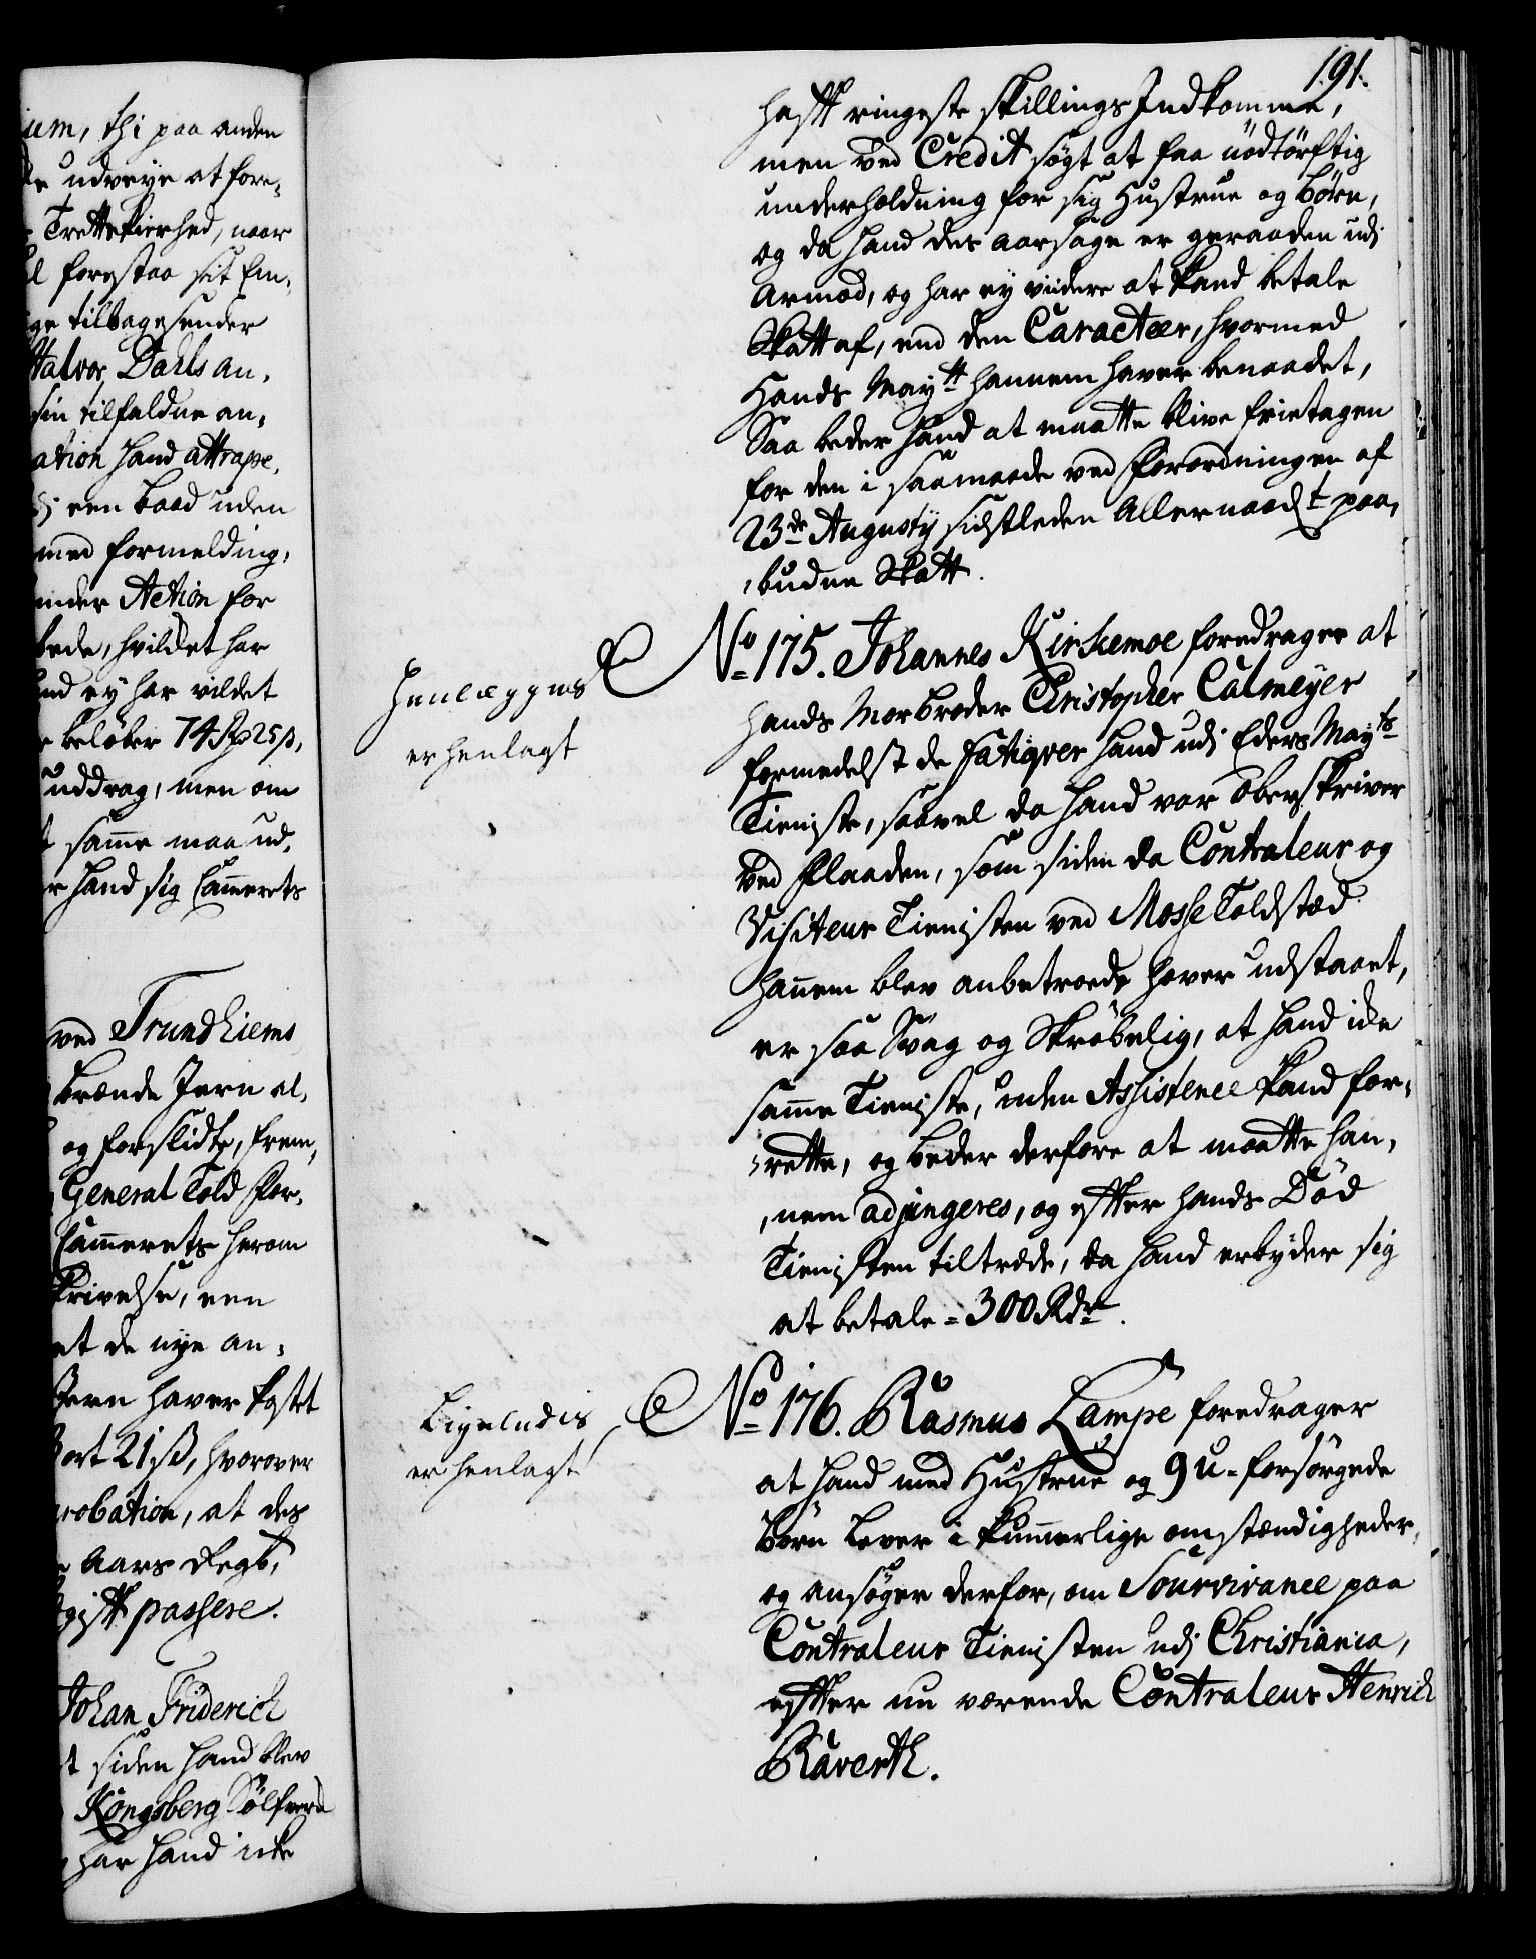 ium, thi paa anden
udveye at fore-
Trettekierhed, naar
forestaa sit Em-
ge tilbagesender
Halvor Dahls an-
sin tilfaldne an-
ation hand attrape-
een Baad uden
med formelding,
under Action for
bede, hvildet har
nd ey har vildet
beløber 74 Rd 25 s,
uddrag, men om
t samme maa ud-
r hand sig Cammerets
ved Trundhiems
brænde Jern al-
og forslidte, frem-
General Told For-
Cammerets herom
skrivelse, een
et de nye an-
Jern haver kostet
ort 21 ß, hvorover
robation, at des
Aars Regb,
gift passere.
Johan Friderich
t siden hand blev
Kongsberg Sølfverk
har hand icke
191.
hafft ringeste skillings Indkomme,
men ved Credit søgt at faa nödtörftig
underholdning for sig Hustrue og Börn,
og da hand des aarsage er geraaden udi
Armod, og har ey viidere at kand betale
Skatt af, end den Caracteer, hvormed
Hands Maytt hannem haver benaadet,
Saa beder hand at maatte blive frietagen
for den i saamaade ved Forordningen af
23de Augusty sidstleden Allernaadt paa-
budne Skatt.
Henlægges
er henlagt
No 175. Johannes Kirkemoe foredrager at
hands Morbroder Christopher Calmeyer
formedelst de Fatiqver hand udi Eders Mayts
Tieniste, saavel da hand var Oberskriver
ved Flaaden, som siden da Contraleur og
Visiteur Tienisten ved Mosse Toldstæd
hannem blev anbetroede haver udstaaet,
er saa Svag og Skröbelig, at hand icke
samme Tieniste, uden Assistence kand for-
rette, og beder derfore at maatte han-
nem adjungeres, og effter hands Död
Tienisten tiltræde, da hand erbyder sig
at betale = 300 Rdr.
Ligeledis
er henlagt
No 176. Rasmus Lampe foredrager
at hand med Hustrue og 9 u-forsörgede
Börn Lever i kummerlige omstændigheder,
og ansöger derfor, om Sourvivance paa
Contraleur Tienisten udi Christiania,
effter nu værende Contraleur Henrich
Raverth.